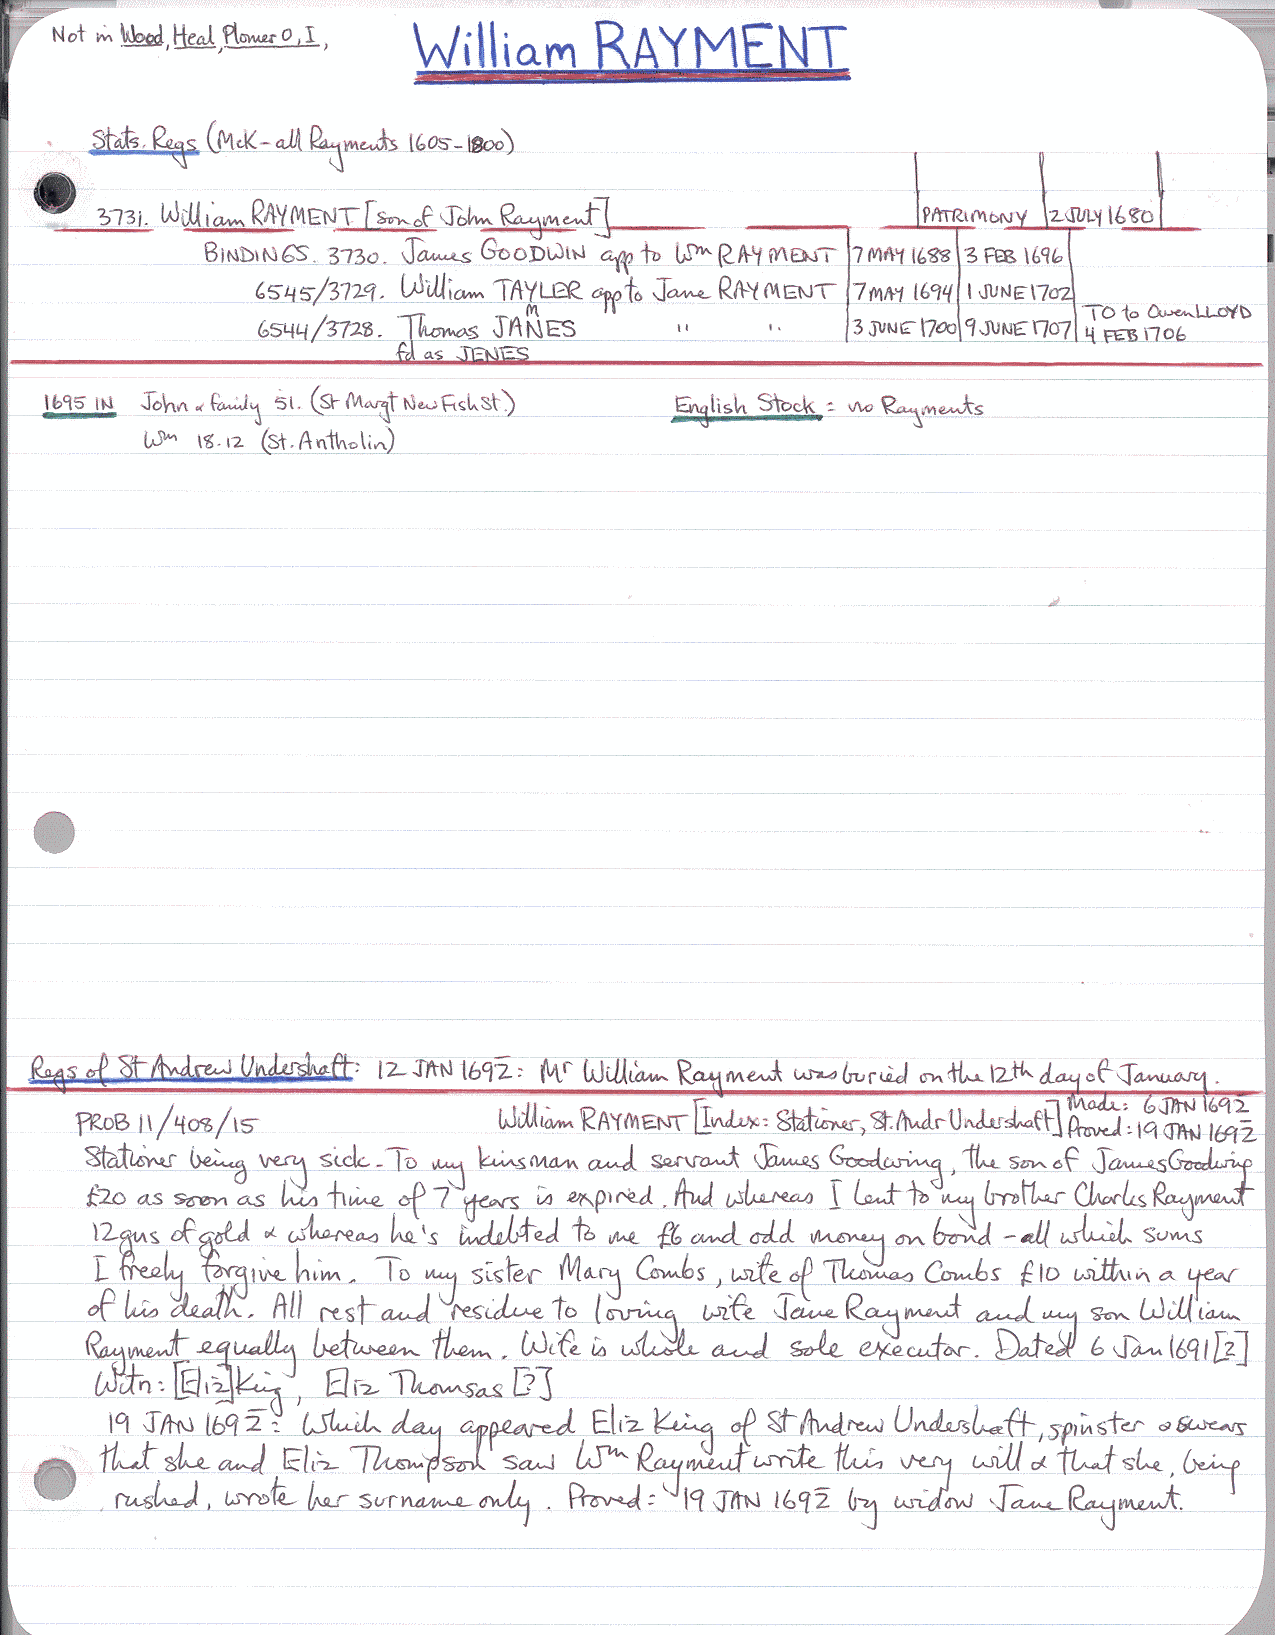 Not in Wood, Heal, Plomer O, I,
William RAYMENT
Stats. Regs (McK - all Rayments 1605-1800)
3731. William RAYMENT [son of John Rayment] PATRIMONY 2 JULY 1680
BINDINGS. 3730. James GOODWIN app to Wm RAYMENT 7 MAY 1688 3 FEB 1696
6545/3729. William TAYLER app to Jane RAYMENT 7 MAY 1694 1 JUNE 1702
M
6544/3728. Thomas JANES " " 3 JUNE 1700 9 JUNE 1707 TO to Owen LLOYD
4 FEB 1706
fd as JENES
1695 IN John & family 51. (St Margt New Fish St.) English Stock = no Rayments
Wm 18.12 (St. Antholin)
Regs of St Andrew Undershaft: 12 JAN 1692̅: Mr William Rayment was buried on the 12th day of January.
PROB 11/408/15 William RAYMENT [Index: Stationer, St. Andr Undershaft] Made: 6 JAN 1692̅
Proved: 19 JAN 1692̅
Stationer being very sick - To my kinsman and servant James Goodwing, the son of James Goodwing
£20 as soon as his time of 7 years is expired. And whereas I lent to my brother Charles Rayment
12 gns of gold & whereas he's indebted to me £6 and odd money on bond - all which sums
I freely forgive him. To my sister Mary Combs, wife of Thomas Combs £10 within a year
of his death. All rest and residue to loving wife Jane Rayment and my son William
Rayment equally between them. Wife is whole and sole executor. Dated 6 Jan 1691[2]
Witn: [Eliz] King, Eliz Thomsas [?]
19 JAN 1692̅: Which day appeared Eliz King of St Andrew Undershaft, spinster & swears
that she and Eliz Thompson saw Wm Rayment write this very will & that she, being
rushed, wrote her surname only. Proved: 19 JAN 1692̅ by widow Jane Rayment.